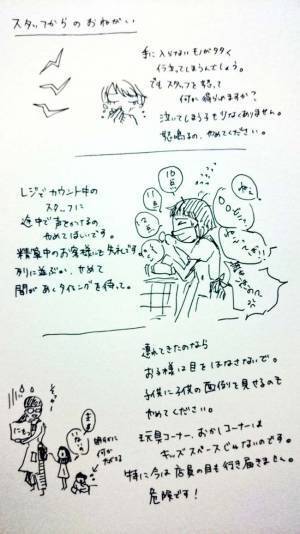 スタッフからのおねがい
手に入らないモノが多々
イライラしてしまうんでしょう。
でもスタッフを怒って
何か得られますか?
泣いてしまう子も少なくありません。
怒鳴るの、やめてください。
レジでカウント中の
スタッフに
途中で声をかけるの
やめてほしいです。
精算中のお客様にも失礼です。
列に並ぶか、せめて
間があくタイミングを待って。
連れてきたのなら
お子様は目をはなさないで。
子供に子供の面倒を見せるのも
やめてください。
玩具コーナー、おかしコーナーは
キッズスペースじゃないのです。
特に今は店員の目も行き届きません。
危険です!